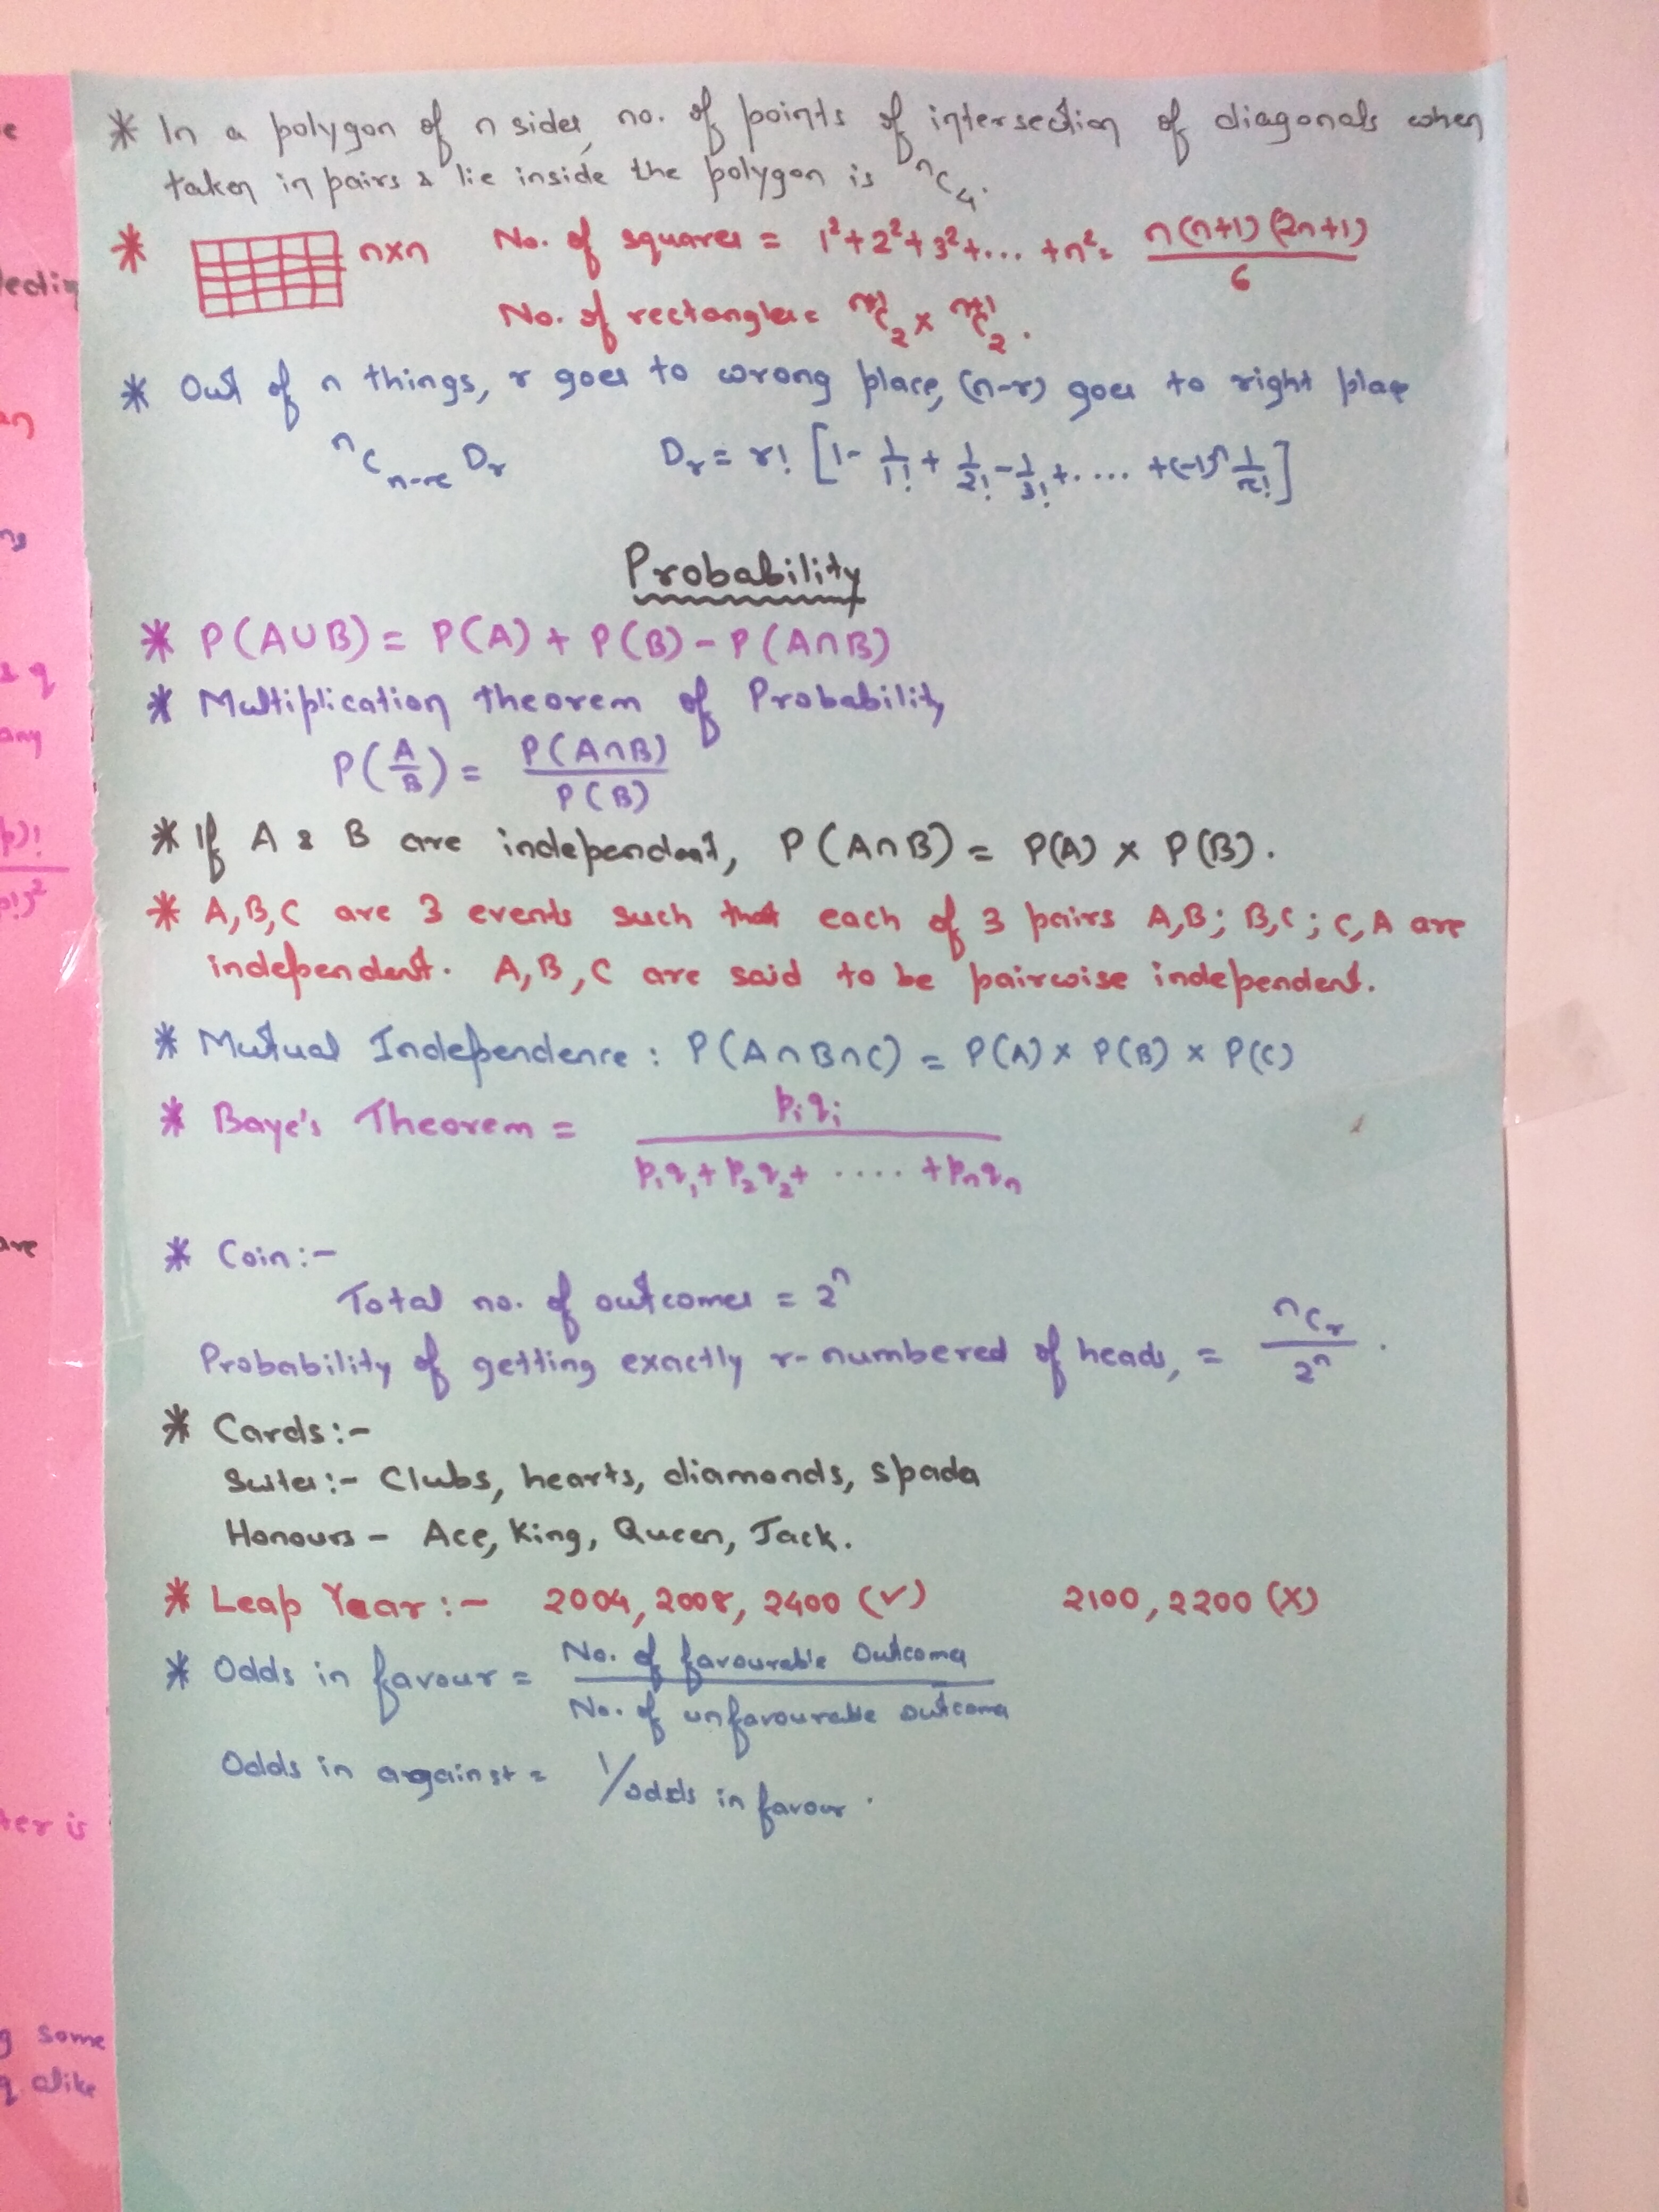 * In a polygon of n sides, no. of points of intersection of diagonals when
taken in pairs & lie inside the polygon is ⁿC₄.
* n×n No. of squares = 1²+2²+3²+... +n² = n(n+1)(2n+1)/6
No. of rectangles = ⁿ⁺¹C₂ × ⁿ⁺¹C₂.
* Out of n things, r goes to wrong place, (n-r) goes to right place
ⁿCₙ₋ᵣ Dᵣ Dᵣ = r! [1 - 1/1! + 1/2! - 1/3! + .... +(-1)ʳ 1/r!]
Probability
* P(A∪B) = P(A) + P(B) - P(A∩B)
* Multiplication theorem of Probability
P(A/B) = P(A∩B)/P(B)
* If A & B are independent, P(A∩B) = P(A) × P(B).
* A,B,C are 3 events such that each of 3 pairs A,B; B,C; C,A are
independent. A,B,C are said to be pairwise independent.
* Mutual Independence : P(A∩B∩C) = P(A) × P(B) × P(C)
* Baye's Theorem = pᵢqᵢ / p₁q₁+p₂q₂+ .... +pₙqₙ
* Coin:-
Total no. of outcomes = 2ⁿ
Probability of getting exactly r-numbered of heads, = ⁿCᵣ/2ⁿ.
* Cards:-
Suites:- Clubs, hearts, diamonds, spades
Honours - Ace, King, Queen, Jack.
* Leap Year:- 2004, 2008, 2400 (✓) 2100, 2200 (X)
* Odds in favour = No. of favourable Outcomes / No. of unfavourable outcomes
Odds in against = 1/odds in favour.
lectin
an
ns
& q
any
p)!
p!)²
are
ter is
g some
q alike